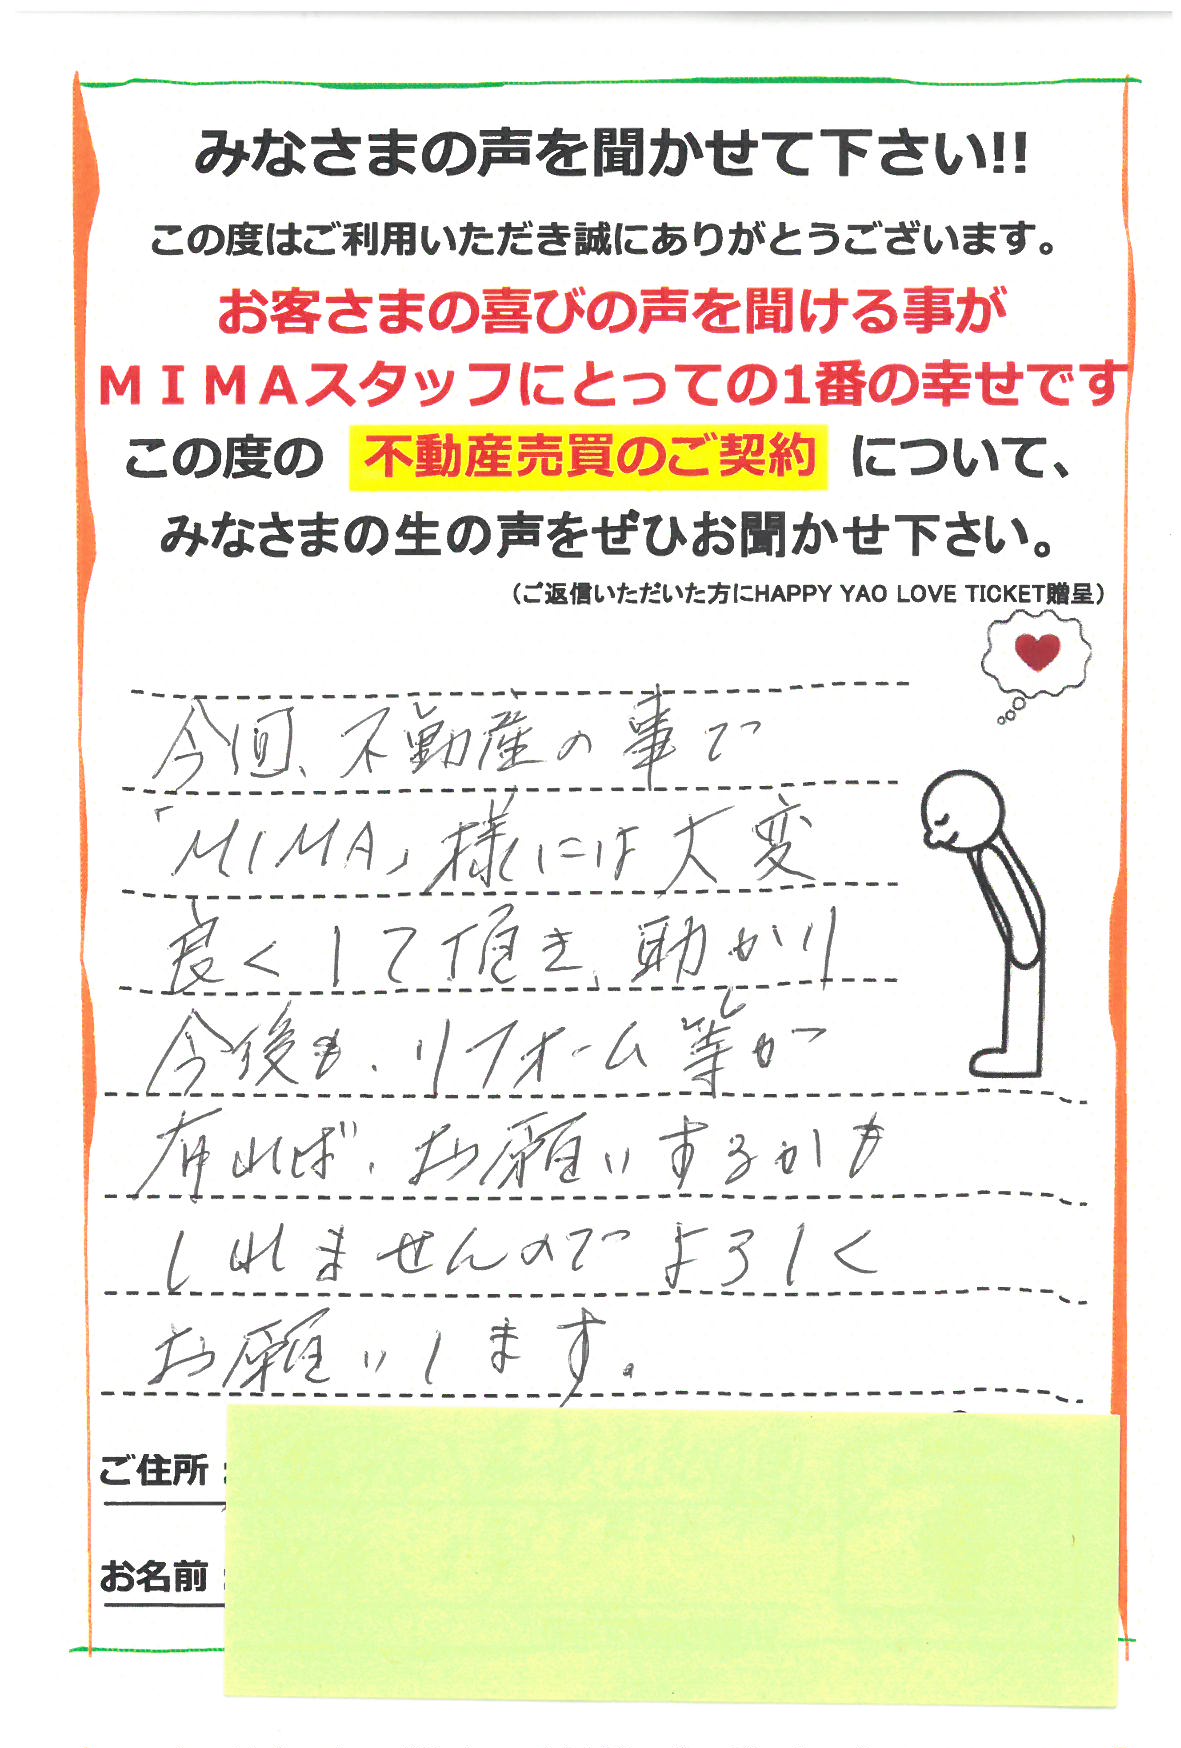 みなさまの声を聞かせて下さい!!
この度はご利用いただき誠にありがとうございます。
お客さまの喜びの声を聞ける事が
ＭＩＭＡスタッフにとっての1番の幸せです
この度の 不動産売買のご契約 について、
みなさまの生の声をぜひお聞かせ下さい。
（ご返信いただいた方にHAPPY YAO LOVE TICKET贈呈）
今回、不動産の事で
「MIMA」様には大変
良くして頂き、助かり
今後も、リフォーム等が
有れば、お願いするかも
しれませんのでよろしく
お願いします。
ご住所：
お名前：